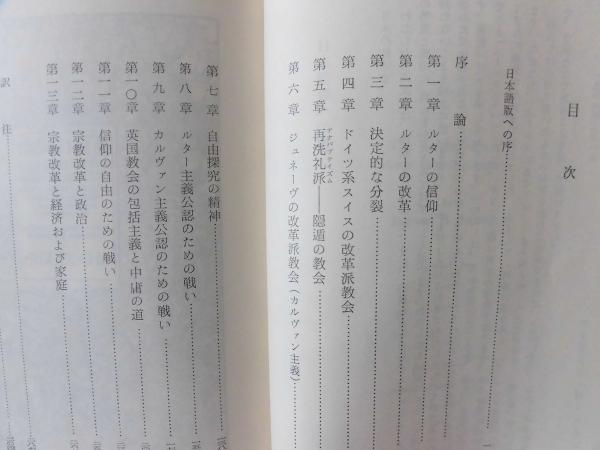 目次
日本語版への序
序論
第一章 ルターの信仰
第二章 ルターの改革
第三章 決定的な分裂
第四章 ドイツ系スイスの改革派教会
第五章 再洗礼派アナバプティズム――隠遁の教会
第六章 ジュネーヴの改革派教会(カルヴァン主義)
第七章 自由探究の精神
第八章 ルター主義公認のための戦い
第九章 カルヴァン主義公認のための戦い
第一〇章 英国教会の包括主義と中庸の道
第一一章 信仰の自由のための戦い
第一二章 宗教改革と政治
第一三章 宗教改革と経済および家庭
訳注